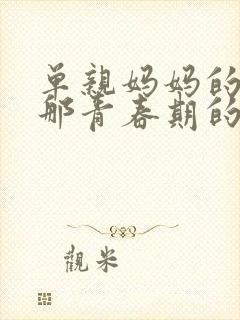 单亲妈妈的
那青春期的
觀米